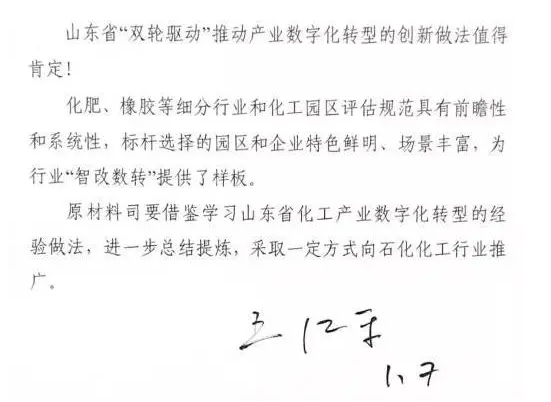 山东省“双轮驱动”推动产业数字化转型的创新做法值得
肯定！
化肥、橡胶等细分行业和化工园区评估规范具有前瞻性
和系统性，标杆选择的园区和企业特色鲜明、场景丰富，为
行业“智改数转”提供了样板。
原材料司要借鉴学习山东省化工产业数字化转型的经
验做法，进一步总结提炼，采取一定方式向石化化工行业推
广。
王江平
1.7